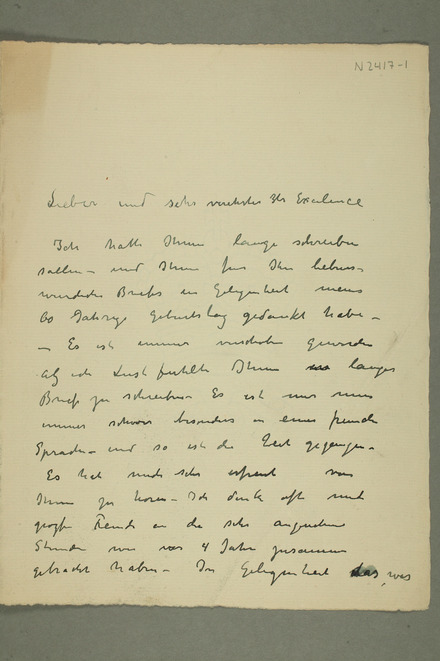 N 2417-1
Lieber und sehr verehrter Hr Excelence
Ich hatte Ihnen lange schreiben
sollen – und Ihnen fur Ihr liebens-
wurdiches Briefs en Gelegenheit meins
60 Jahrige Geburtstag gedankt habe –
– Es ist immer verschoben geworden
als ich Lust fuhlte Ihnen langes
Brief zu schreiben – Es ist mir nun
immer schwer besonders in eine fremde
Sprache – und so ist die Zeit gegangen –
Es hat mich sehr erfreut von
Ihnen zu horen – Ich denke oft mit
großte Freude an die sehr angenehme
Stunden wir vor 4 Jahre zusammen
gebracht haben – Die Gelegenheit das, was